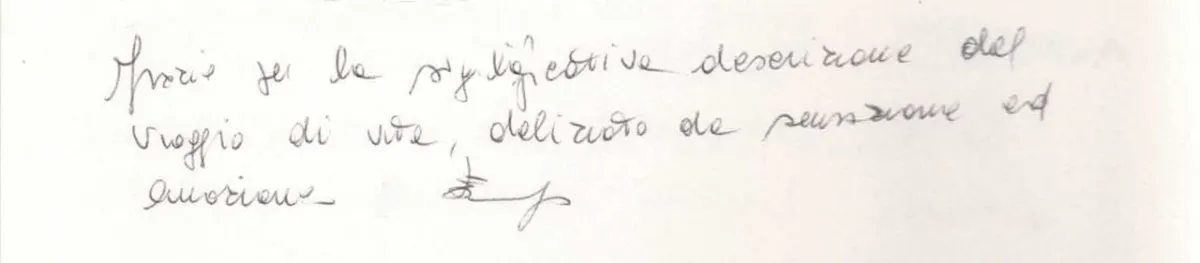 Grazie per la significativa descrizione del
viaggio di vita, delizioto da sensazione ed
emozione